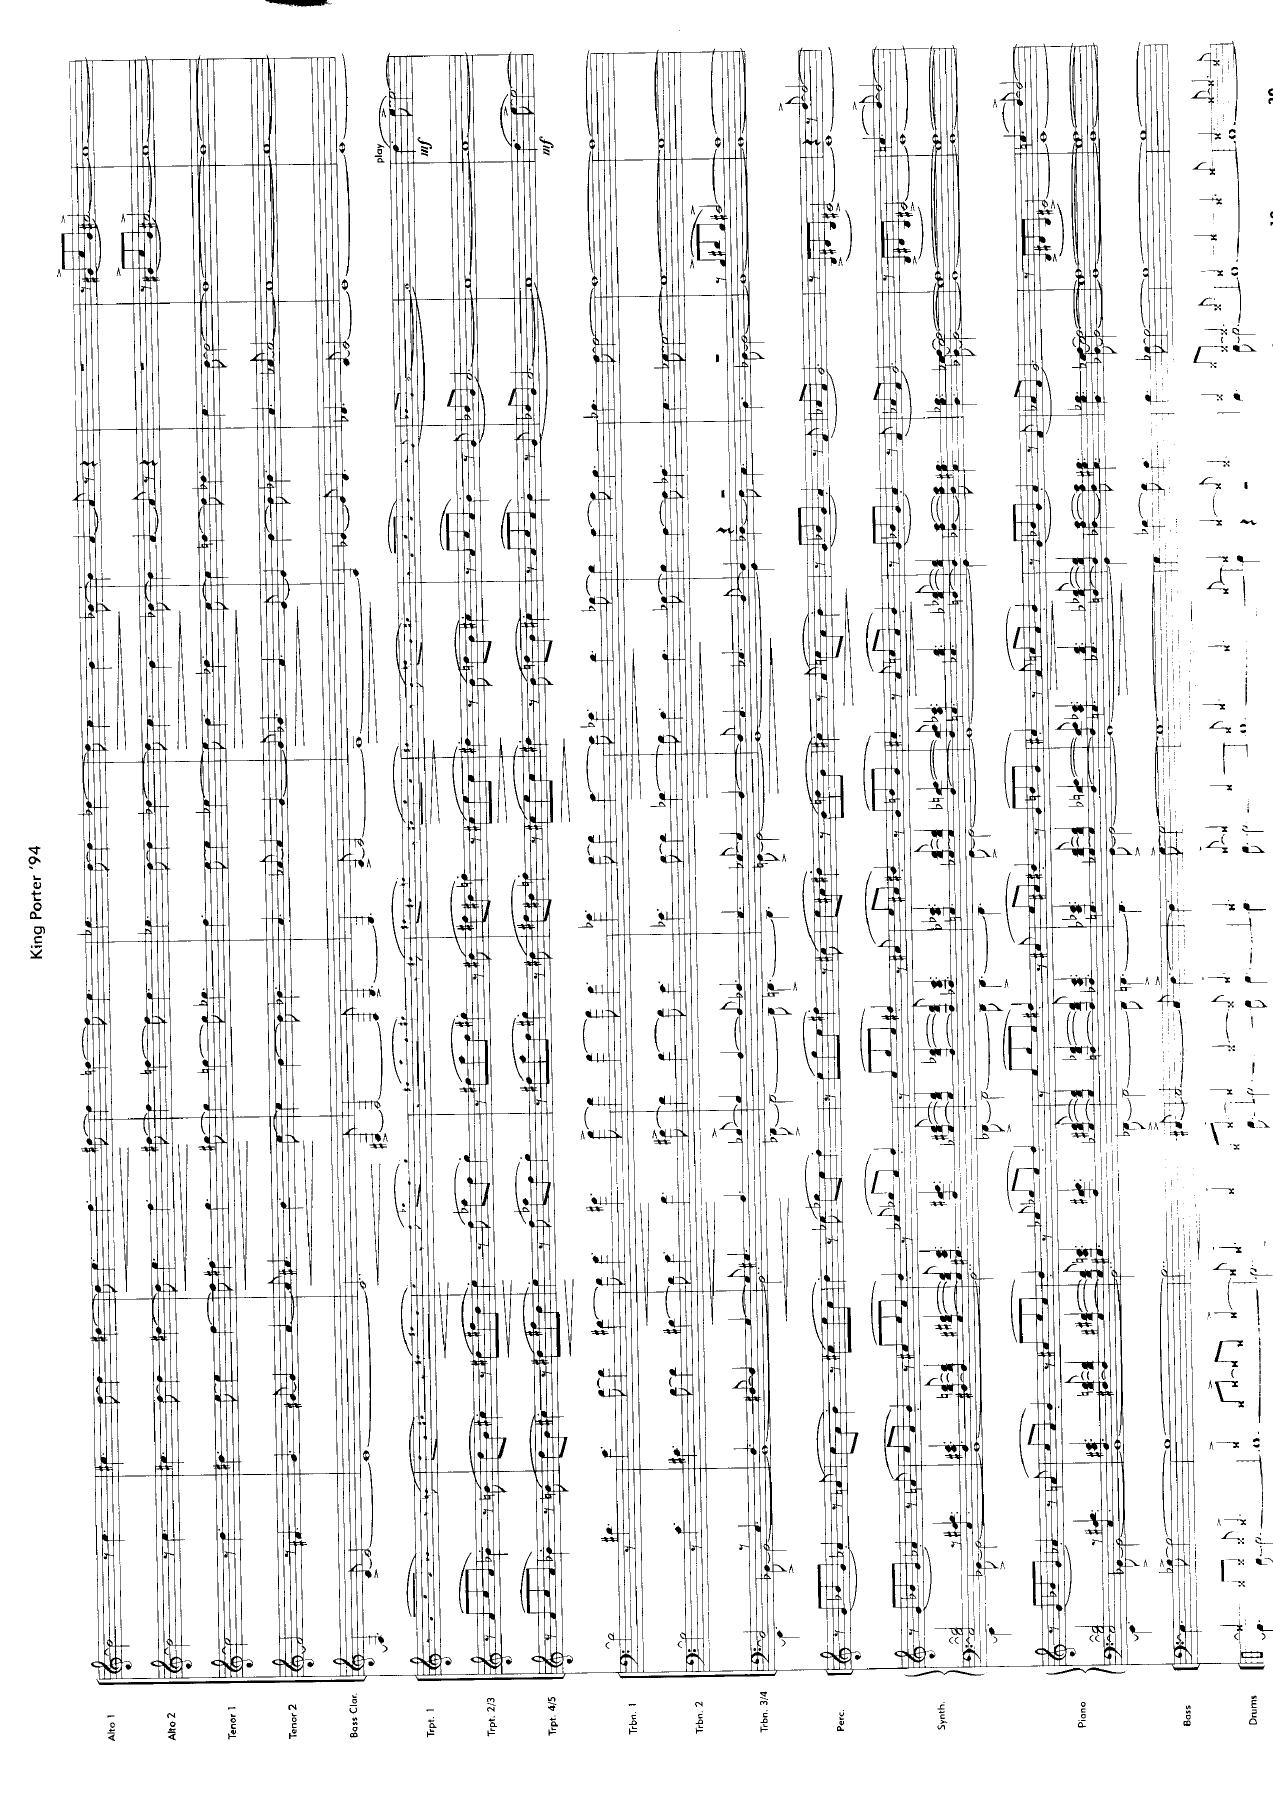 King Porter '94
Alto 1
Alto 2
Tenor 1
Tenor 2
Bass Clar.
Trpt. 1
Trpt. 2/3
Trpt. 4/5
Trbn. 1
Trbn. 2
Trbn. 3/4
Perc.
Synth.
Piano
Bass
Drums
play